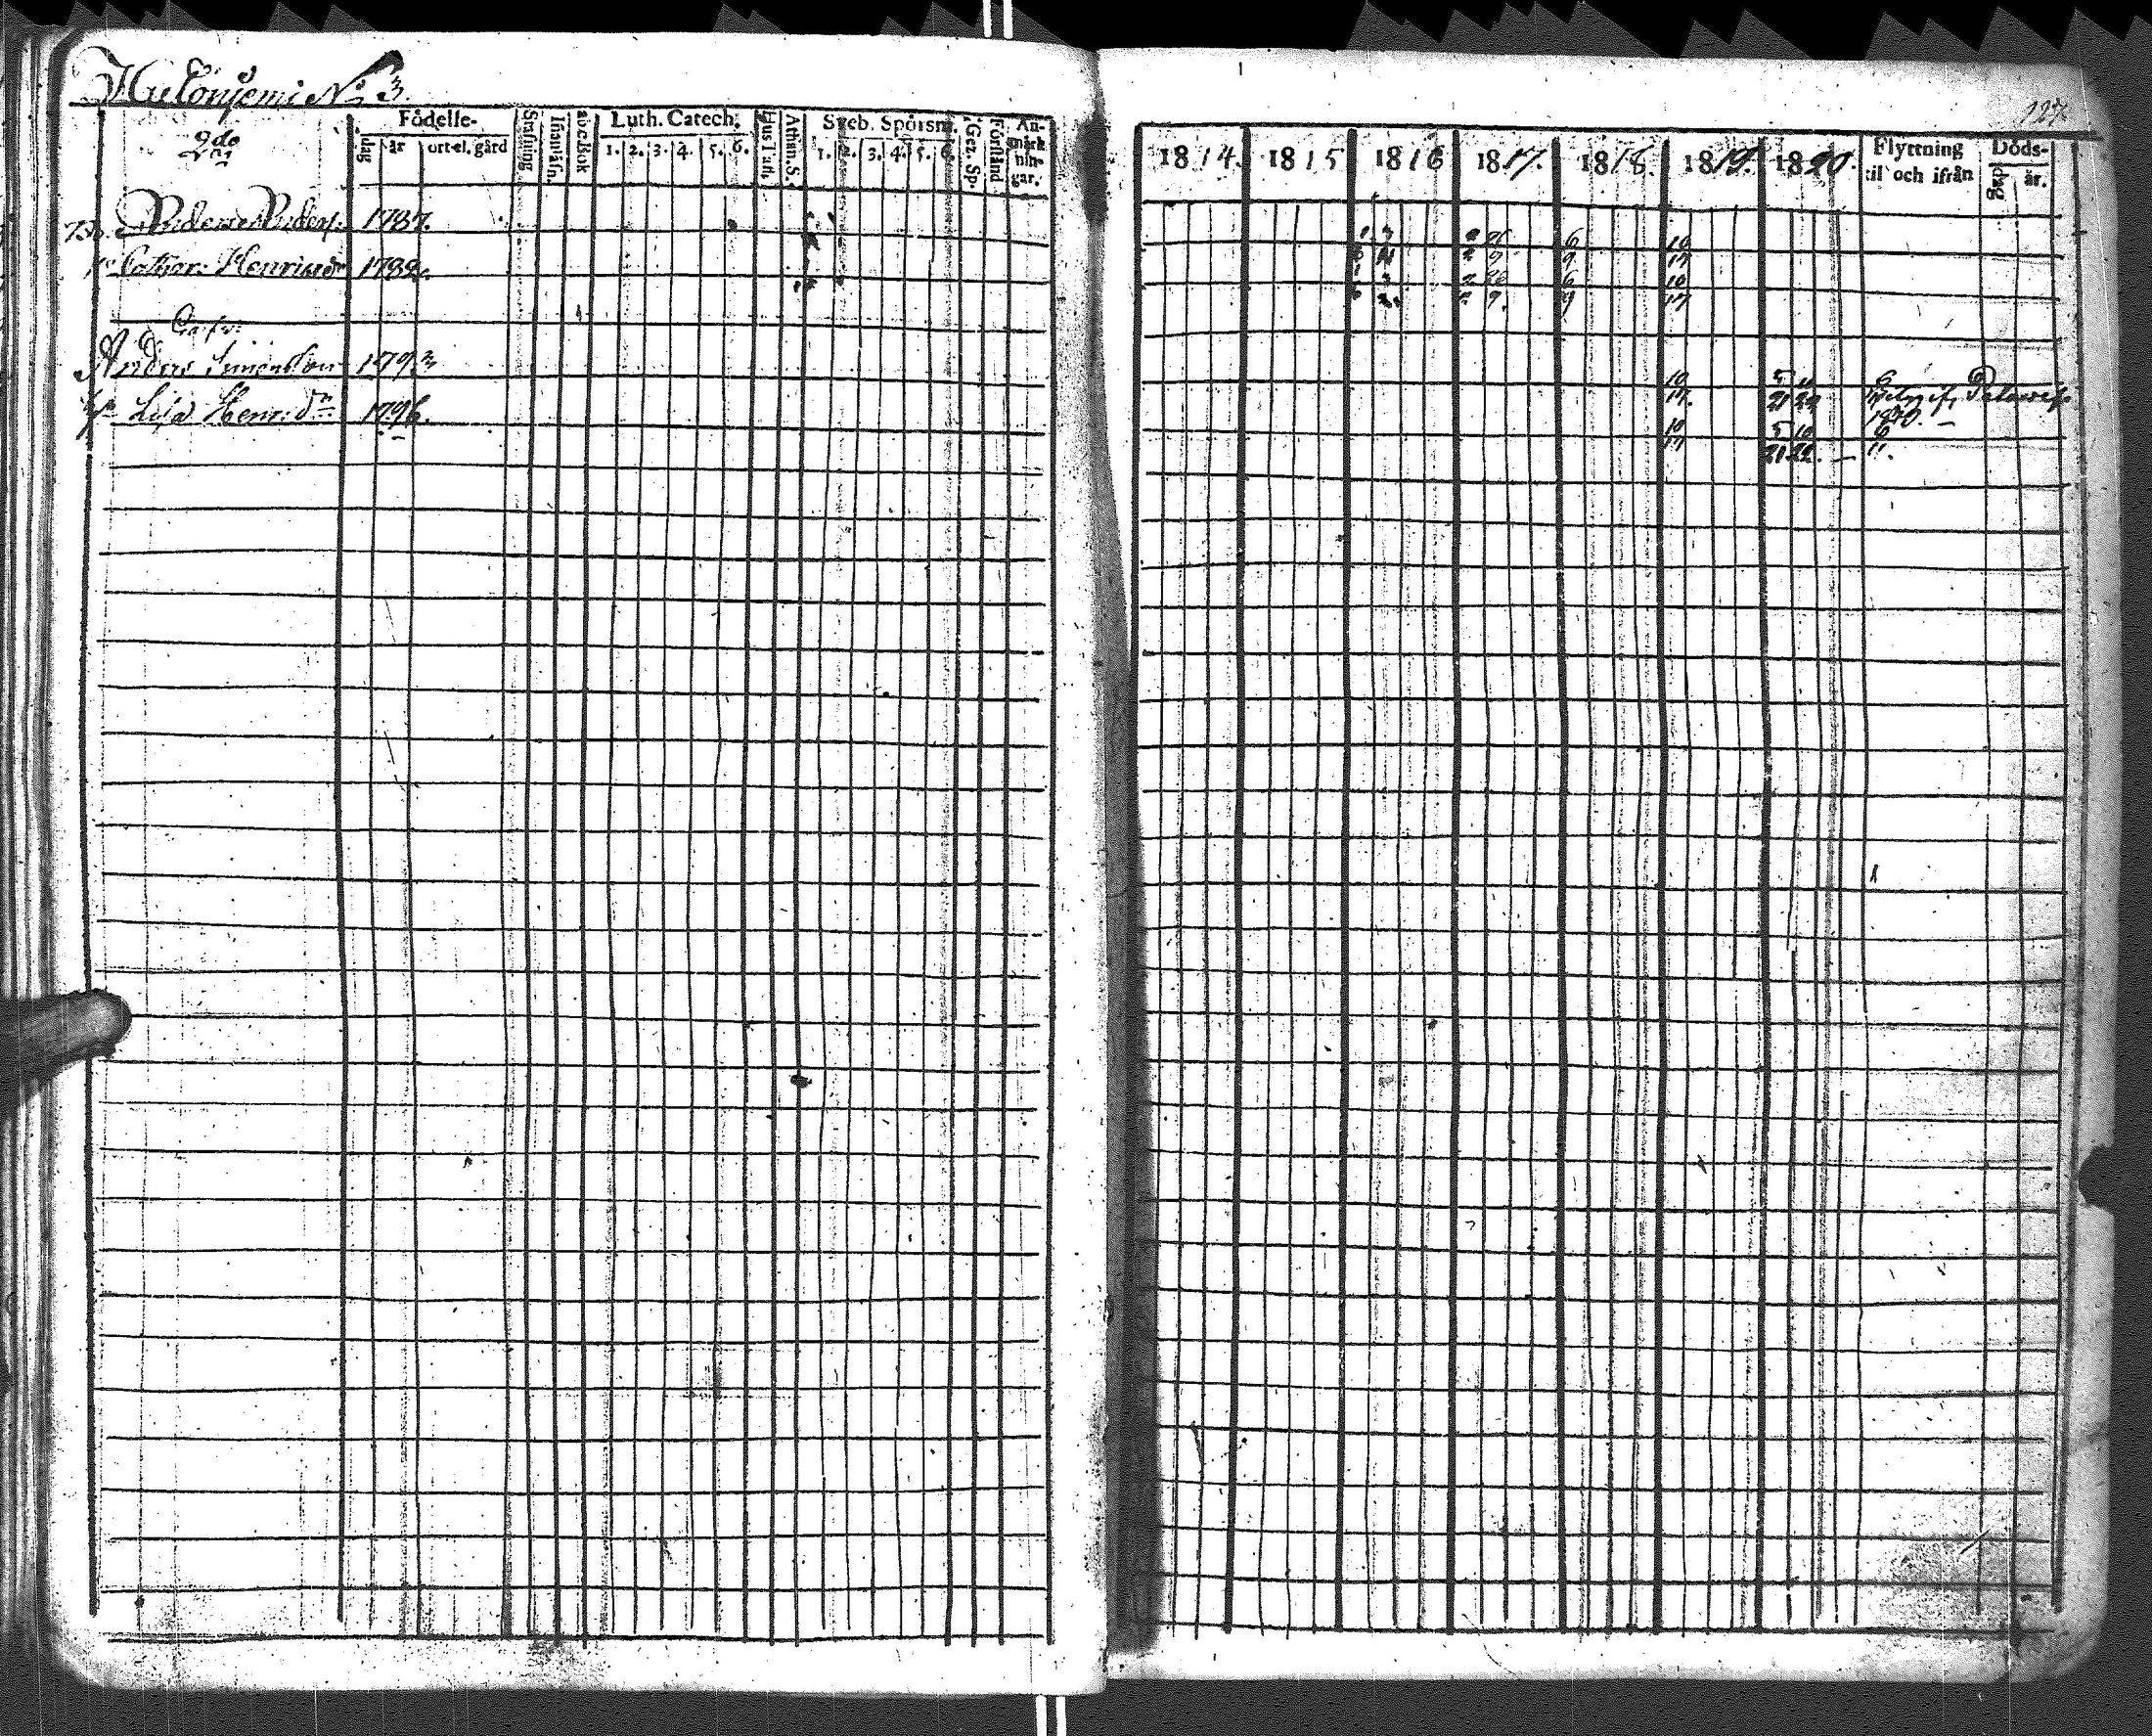 Hulonjemi No 3.
2do
Födelse-
dag
år
ort el. gård
Stafning
Innanläsn.
abcbok
Luth. Catech.
1. 2. 3. 4. 5. 6.
Hus Tafl.
Athan. S.
Sveb. Spörsm.
1. 2. 3. 4. 5. 6.
Gez. Sp.
Förstånd
An-
märk
nin-
gar.
Anders Anders. 1787.
Cathar. Henricsdr 1782.
Anders Simonsson 1793
Lisa Henr. dr 1796.
127.
1814. 1815 1816 1817. 1818. 1819. 1820.
Flyttning
til och ifrån
Döds-
dag
år.
2 26 6 10
2 9 9 17
2 26 6 10
2 9. 9 17
10 5 10 6
17. 21 22
1820.
10 5 10 6
17 21 22. — ".